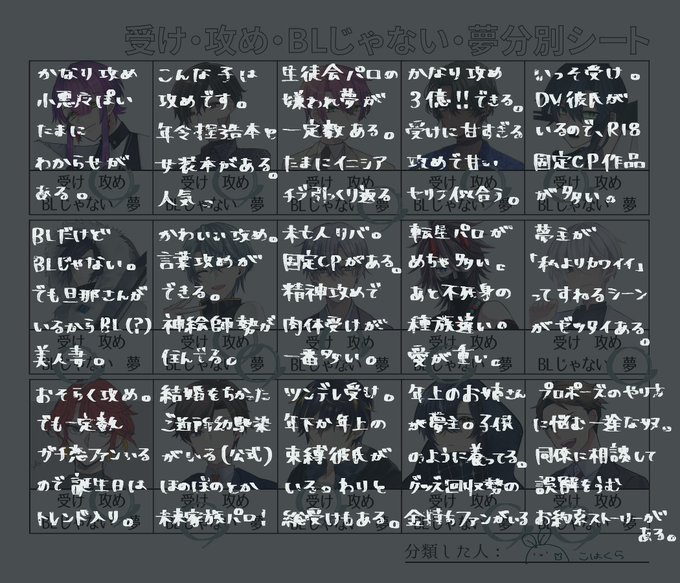 受け・攻め・BLじゃない・夢分別シート
かなり攻め
小悪魔ぽい
たまに
わからせが
ある。
こんな子は
攻めです。
年令捏造本や
女装本がある。
人気っ
生徒会パロの
嫌われ夢が
一定数ある。
たまにイニシア
チブ引っくり返る
かなり攻め
3億!!できる。
受けに甘すぎる
攻めで甘い
セリフ似合う。
いっそ受け。
DV彼氏が
いるので、R18
固定CP作品
が多い。
受け 攻め
BLじゃない 夢
受け 攻め
BLじゃない 夢
受け 攻め
BLじゃない 夢
受け 攻め
BLじゃない 夢
受け 攻め
BLじゃない 夢
BLだけど
BLじゃない。
でも旦那さんが
いるからBL(?)
美人妻。
かわいい攻め。
言葉攻めが
できる。
神絵師勢が
住んでる。
本人リバ。
固定CPがある。
精神攻めで
肉体受けが
一番多い。
転生パロが
めちゃ多い。
あと不死身の
種族違い。
愛が重い。
夢主が
「私よりカワイイ」
ってすねるシーン
がゼッタイある。
受け 攻め
BLじゃない 夢
受け 攻め
BLじゃない 夢
受け 攻め
BLじゃない 夢
受け 攻め
BLじゃない 夢
受け 攻め
BLじゃない 夢
おそらく攻め。
でも一定数
ガチ恋ファンいる
ので誕生日は
トレンド入り。
結婚をちかった
ご近所幼馴染
がいる(公式)
ほのぼのとか
未来家族パロ!
ツンデレ受け。
年下か年上の
束縛彼氏が
いる。わりと
総受けもある。
年上のお姉さん
が夢主。子供
のように養ってる。
グッズ回収勢の
金持ちファンがいる
プロポーズのやり方
に悩む一途な奴。
同僚に相談して
誤解をうむ
お約束ストーリーが
ある。
受け 攻め
BLじゃない 夢
受け 攻め
BLじゃない 夢
受け 攻め
BLじゃない 夢
受け 攻め
BLじゃない 夢
受け 攻め
BLじゃない 夢
分類した人:
こはくら